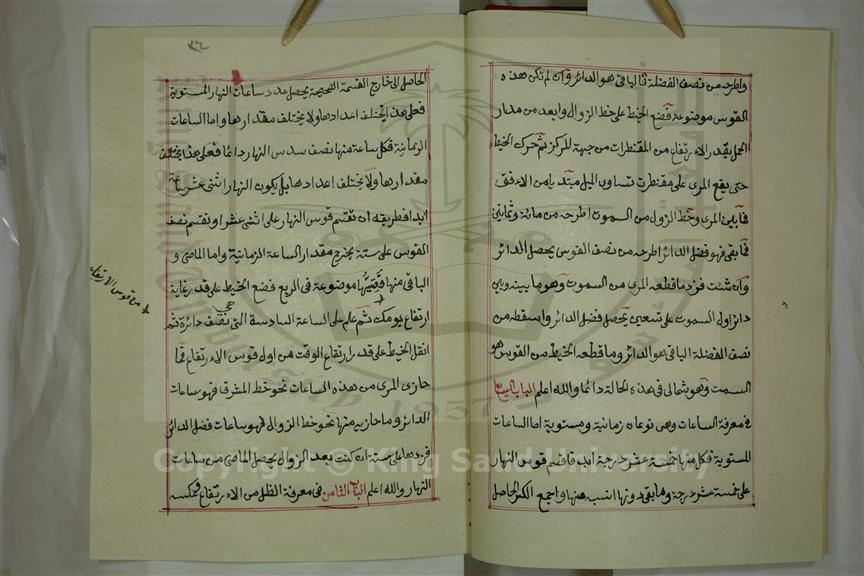 واطرحه من نصف الفضلة فالباقي هو الدائر وان لم تكن هذه
القوس موضوعة فضع الخيط على خط الزوال وابعد من مدار
الحمل بقدر الارتفاع من المقنطرات من جهة المركز ثم حرك الخيط
حتى يقع المرى على مقنطرة تساوى الميل مبتديا من الافق
فما بين المرى وخط الزول من السموت اطرحه من مائة وثمانين
فما بقى فهو فضل الدائر اطرحه من نصف القوس يحصل الدائر
وان شئت فزد ما قطعه المرى من السموت وهو ما بينه وبين
دائر اول السموت على تسعين يحصل فضل الدائر واسقطه من
نصف الفضلة الباقي هو الدائر وما قطعه الخيط من القوس هو
السمت وهو شمالى فى هذه الحالة دائما والله اعلم الباب السابع
فى معرفة الساعات وهى نوعان زمانية ومستوية اما الساعات
المستوية فكل منها خمسة عشر درجة ابدا فاقسم قوس النهار
على خمسة عشر درجة وما بقى دونها انسبه منها واجمع الكسر الحاصل
الحاصل الى خارج القسمة الصحيحة يحصل عدد ساعات النهار المستوية
فعلى هذا يختلف اعدادها ولا يختلف مقدارها واما الساعات
الزمانية فكل ساعة منها نصف سدس النهار دائما فعلى هذا يختلف
مقدارها ولا يختلف اعدادها بل يكون النهار اثنى عشر ساعة
ابدا فطريقه ان تقسم قوس النهار على اثنى عشر او تقسم نصف
القوس على ستة يخرج مقدار الساعة الزمانية واما الماضى و
الباقى منها موضوعة فى الربع فضع الخيط على قدر غاية
ارتفاع يومك ثم علم على الساعة السادسة التى نصف دائرة ثم
انقل الخيط على قدر ارتفاع الوقت من اول قوس الارتفاع فما
حازى المرى من هذه الساعات نحو خط المشرق فهو ساعات
الدائر وما حازيه منها نحو خط الزوال فهو ساعات فضل الدائر
فزدها على ستة ان كنت بعد الزوال يحصل الماضى من ساعات
النهار والله اعلم الباب الثامن فى معرفة الظل من الارتفاع وعكسه
من قوس الارتفاع
Copyright © King Saud University
1957